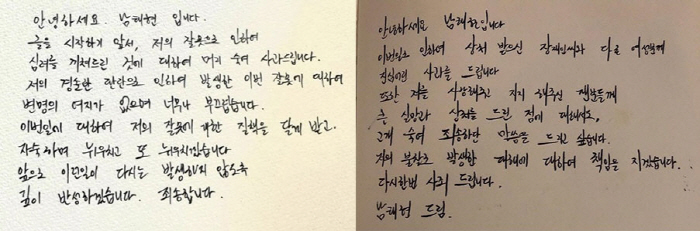 안녕하세요. 남태현 입니다.
글을 시작하기 앞서, 저의 잘못으로 인하여
심려를 끼쳐드린 것에 대하여 머리 숙여 사과드립니다.
저의 경솔한 판단으로 인하여 발생한 이번 잘못에 대하여
변명의 여지가 없으며 너무나 부끄럽습니다.
이번일에 대하여 저의 잘못에 대한 질책을 달게 받고.
자숙하며 뉘우치고 또 뉘우치겠습니다
앞으로 이런일이 다시는 발생하지 않도록
깊이 반성하겠습니다. 죄송합니다.
안녕하세요 남태현입니다
이번일로 인하여 상처 받으신 장재인씨와 다른 여성분께
진심어린 사과를 드립니다
또한 저를 사랑해주고 지지 해주신 팬분들께
큰 실망과 상처를 드린 점에 대해서도,
고개 숙여 죄송하단 말씀을 드리고 싶습니다.
저의 불찰로 발생한 피해에 대하여 책임을 지겠습니다.
다시한번 사죄 드립니다.
남태현 드림.